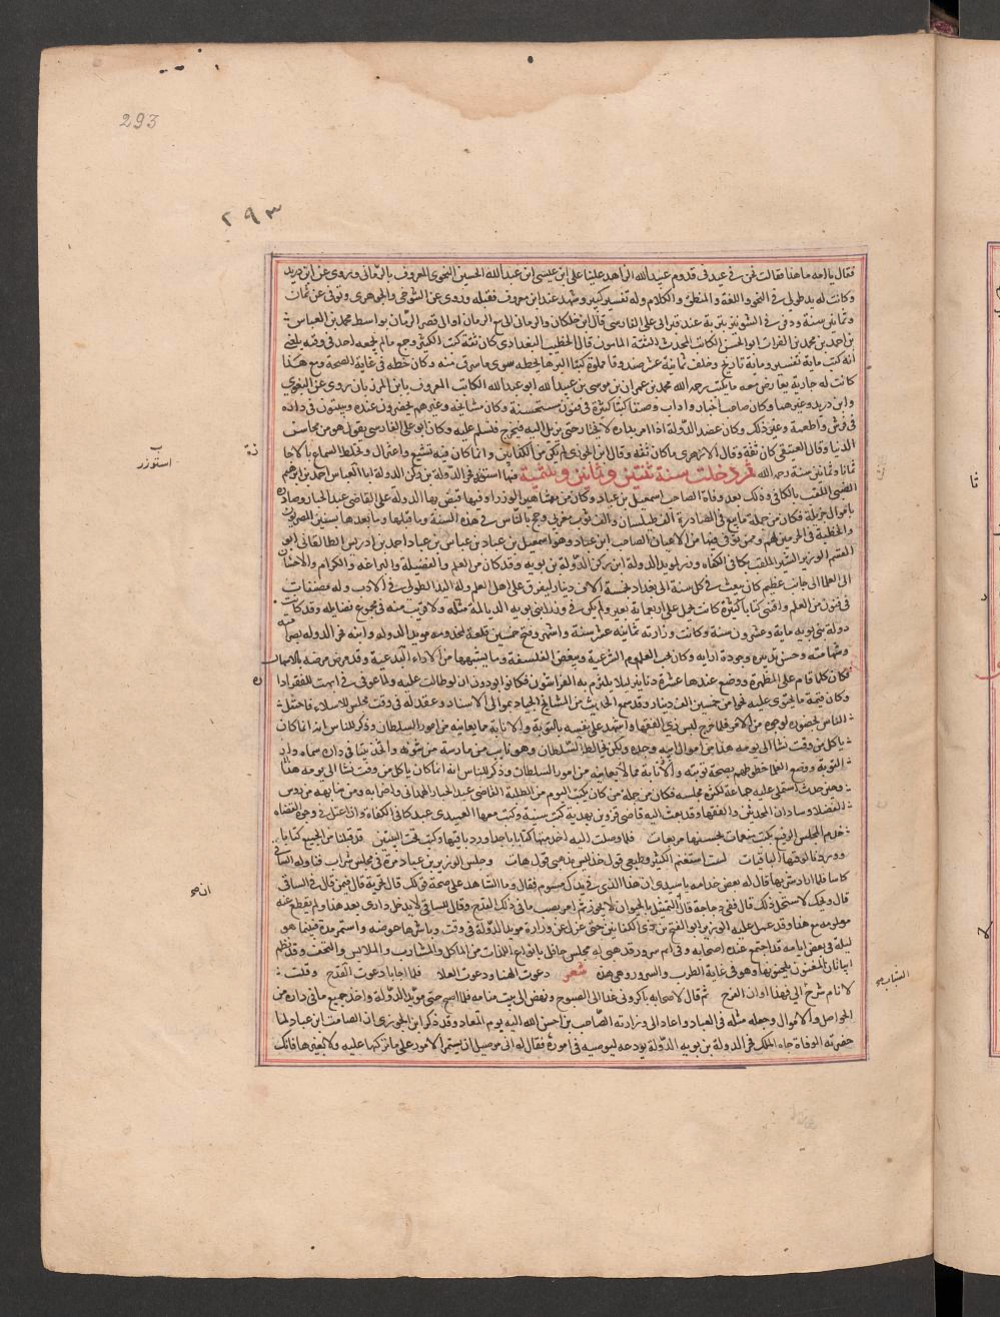 293
٢٩٣
فقال يا امه ما هذا فقالت نحن في عيد في قدوم عبد الله الزاهد علينا علي ابن عيسى ابن عبد الله الحسين النحوي المعروف بالرماني وروى عن ابن دريد
وكانت له يد طولى في النحو واللغة والمنطق والكلام وله تفسير كبير وشهد عند ابن معروف فقبله وروى عن التنوخي والجوهري وتوفى عن ثمان
وثمانين سنة ودفن في الشونيزية عند قبر ابي علي الفارسي قال ابن خلكان والرماني الى بيع الرمان او الى قصر الرمان بواسط محمد بن العباس
بن احمد بن محمد بن الفرات ابو الحسن الكاتب المحدث الثقة المأمون قال الخطيب البغدادي كان ثقة كتب الكثير وجمع ما لم يجمعه احد في وقته بلغني
انه كتب ماية تفسير وماية تاريخ وخلف ثمانية عشر صندوقا مملوة كتبا اكثرها بخطه سوى ما سرق منه وكان خطه في غاية الصحة ومع هذا
كانت له جارية تعارض معه ما يكتب رحمه الله محمد بن عمران بن موسى بن عبيد الله ابو عبد الله الكاتب المعروف بابن المرزبان روى عن البغوي
وابن دريد وغيرهما وكان صاحب أخبار واداب وصنف كتبا كثيرة في فنون مستحسنة وكان مشايخه وغيرهم يحضرون عنده ويبيتون في داره
في فرش واطعمة وغير ذلك وكان عضد الدولة اذا مر بداره لا يجتاز حتى يرسل اليه فيخرج فيسلم عليه وكان ابو علي الفارسي يقول هو من محاسن
الدنيا وقال العتيقي كان ثقة وقال الازهري ما كان ثقة وقال ابن الجوزي لم يكن من الكذابين وانما كان فيه تشيع واعتزال ويخلط السماع بالاجا
زة
ثمانا وثمانين سنة رحمه الله ثم دخلت سنة ثنتين وثمانين وثلثمية فيها استوزر فخر الدولة بن ركن الدولة ابا العباس احمد بن ابرهيم
ب
استوزر
الضبي الملقب بالكافي وذلك بعد وفاة الصاحب اسمعيل بن عباد وكان من مشاهير الوزرا وفيها قبض بها الدولة على القاضي عبد الجبار وصادره
باموال جزيلة فكان من جملة ما بيع في المصادرة الف طيلسان والف ثوب مغربي وحج بالناس في هذه السنة وما قبلها وما بعدها
والخطبة في الحرمين لهم وممن توفى فيها من الاعيان الصاحب ابن عباد وهو اسمعيل بن عباد بن عباس بن عباد احمد بن ادريس الطالقاني ابو
القسم الوزير الشهير الملقب بكافي الكفاه وزر لمويد الدولة ابن ركن الدولة بن بويه وقد كان من العلم والفضيلة والبراعة والكرام والاحسان
الى العلما الى جانب عظيم كان يبعث في كل سنة الى بغداد خمسة آلاف دينار ليفرق على اهل العلم وله اليد الطولى في الادب وله مصنفات
في فنون من العلم واقتنى كتبا كثيرة كانت تحمل على اربعماية بعير ولم يكن في وزرا بني بويه الديالمة مثله ولا قريب منه في مجموع فضايله وقد كانت
دولة بني بويه ماية وعشرون سنة وكانت وزارته ثمانية عشر سنة واشهر وفتح خمسين قلعة لمخدومه مويد الدولة وابنه فخر الدولة
وشهامته وحسن تدبيره وجودة ارايه وكان يحب العلوم الشرعية ويبغض الفلسفة وما يشبهها من الاراء البدعية وقد مرض مرضه بالاسهال
فكان كلما قام على المطهرة ووضع عندها عشرة دنانير ليلا يتبرم به الفراشون فكانوا يودون ان لو طالت عليه
وكان قيمة ما يحتوي عليه نحوا من خمسين الف دينار وقد سمع الحديث من المشايخ الجياد عوالى الاسناد وعقد له في وقت مجلس للاملاء فاحتفل
الناس لحضوره لوجوه من الامر فلما خرج لبس زي الفقهاء واشهد على نفسه بالتوبة والانابة مما يعانيه من امور السلطان وذكر للناس انه انما كان
ياكل من وقت نشا الى يومه هذا من اموال ابيه وجده ولكن يخالط السلطان وهو تايب من ما رسه من شوونه واتخذ بيتا في داره سماه دار
التوبة ووضع العلما خطوطهم بصحة توبته
وذكر للناس انه انما كان ياكل من وقت نشا الى يومه هذا
وحين حدث استملى عليه جماعة لكثرة مجلسه فكان من جملة من كان يكتب اليوم من الطلبة القاضي عبد الجبار الهمداني واضرابه
الفضلا وسادات المحدثين والفقها وقد بعث اليه قاضي قزوين بهدية كتب سنية وكتب معها العميدي عبد كافي الكفاة وان اعتل في وجوه القضاه
خدم المجلس الرفيع بكتب منعمات بحسنها مربعات فلما وصلت اليه اخذ منها كتابا واحدا ورد باقيها وكتب تحت البيتين قد قبلنا من الجميع كتابا
ورددنا لوقتها الباقيات لست استغنم الكثير وطبعي قول خذ ليس مذهبي قول هات وجلس الوزير بن عباد مرة في مجلس شراب فناوله الساقي
كاسا فلما اراد شربها قال له بعض خدامه يا سيدي ان هذا الذي في يدك مسموم فقال وما الشاهد على صحة قولك قال تجربة قال فيمن قال في الساقي
قال ويحك لا استحل ذلك قال ففي دجاجة قال التمثيل بالحيوان لا يجوز ثم امر بصب ما في ذلك القدح وقال للساقي لا يدخل داري بعد هذا ولم يقطع عنه
انهى
معلومه مع هذا وقد عمل عليه الوزير ابو الفتح بن ذي الكفايتين حتى عزله عن وزارة مويد الدولة في وقت وباشرها عوضه واستمر مدة فبينما هو
ليلة في بعض ايامه قد اجتمع عنده اصحابه وفي اتم سرور قد هيى له مجلس حافل بانواع اللذات من المآكل والمشارب والملابس والتحف وقد نظم
ابياتا والمغنون يلحنونها وهو في غاية الطرب والسرور وهي هذه شعر دعوت الهنا ودعوت العلا فلما اجابا دعوت القدح وقلت
الشباب
لايام شرخ الي فهذا اوان الفرح ثم قال لاصحابه باكروني غدا الى الصبوح ونهض الى بيت منامه فلما اصبح حتى مويد الدولة واخذ جميع ما في داره من
الحواصل والاموال وجعله مثلة في العباد واعاد الى وزارته الصاحب بن
وقد ذكر ابن الجوزي ان الصاحب ابن عباد لما
حضرته الوفاة جاه الملك فخر الدولة بن بويه الدولة يودعه ليوصيه في اموره فقال له اني موصيك ان يستمر الامور على ما تركتها عليه ولا يغيرها فانك